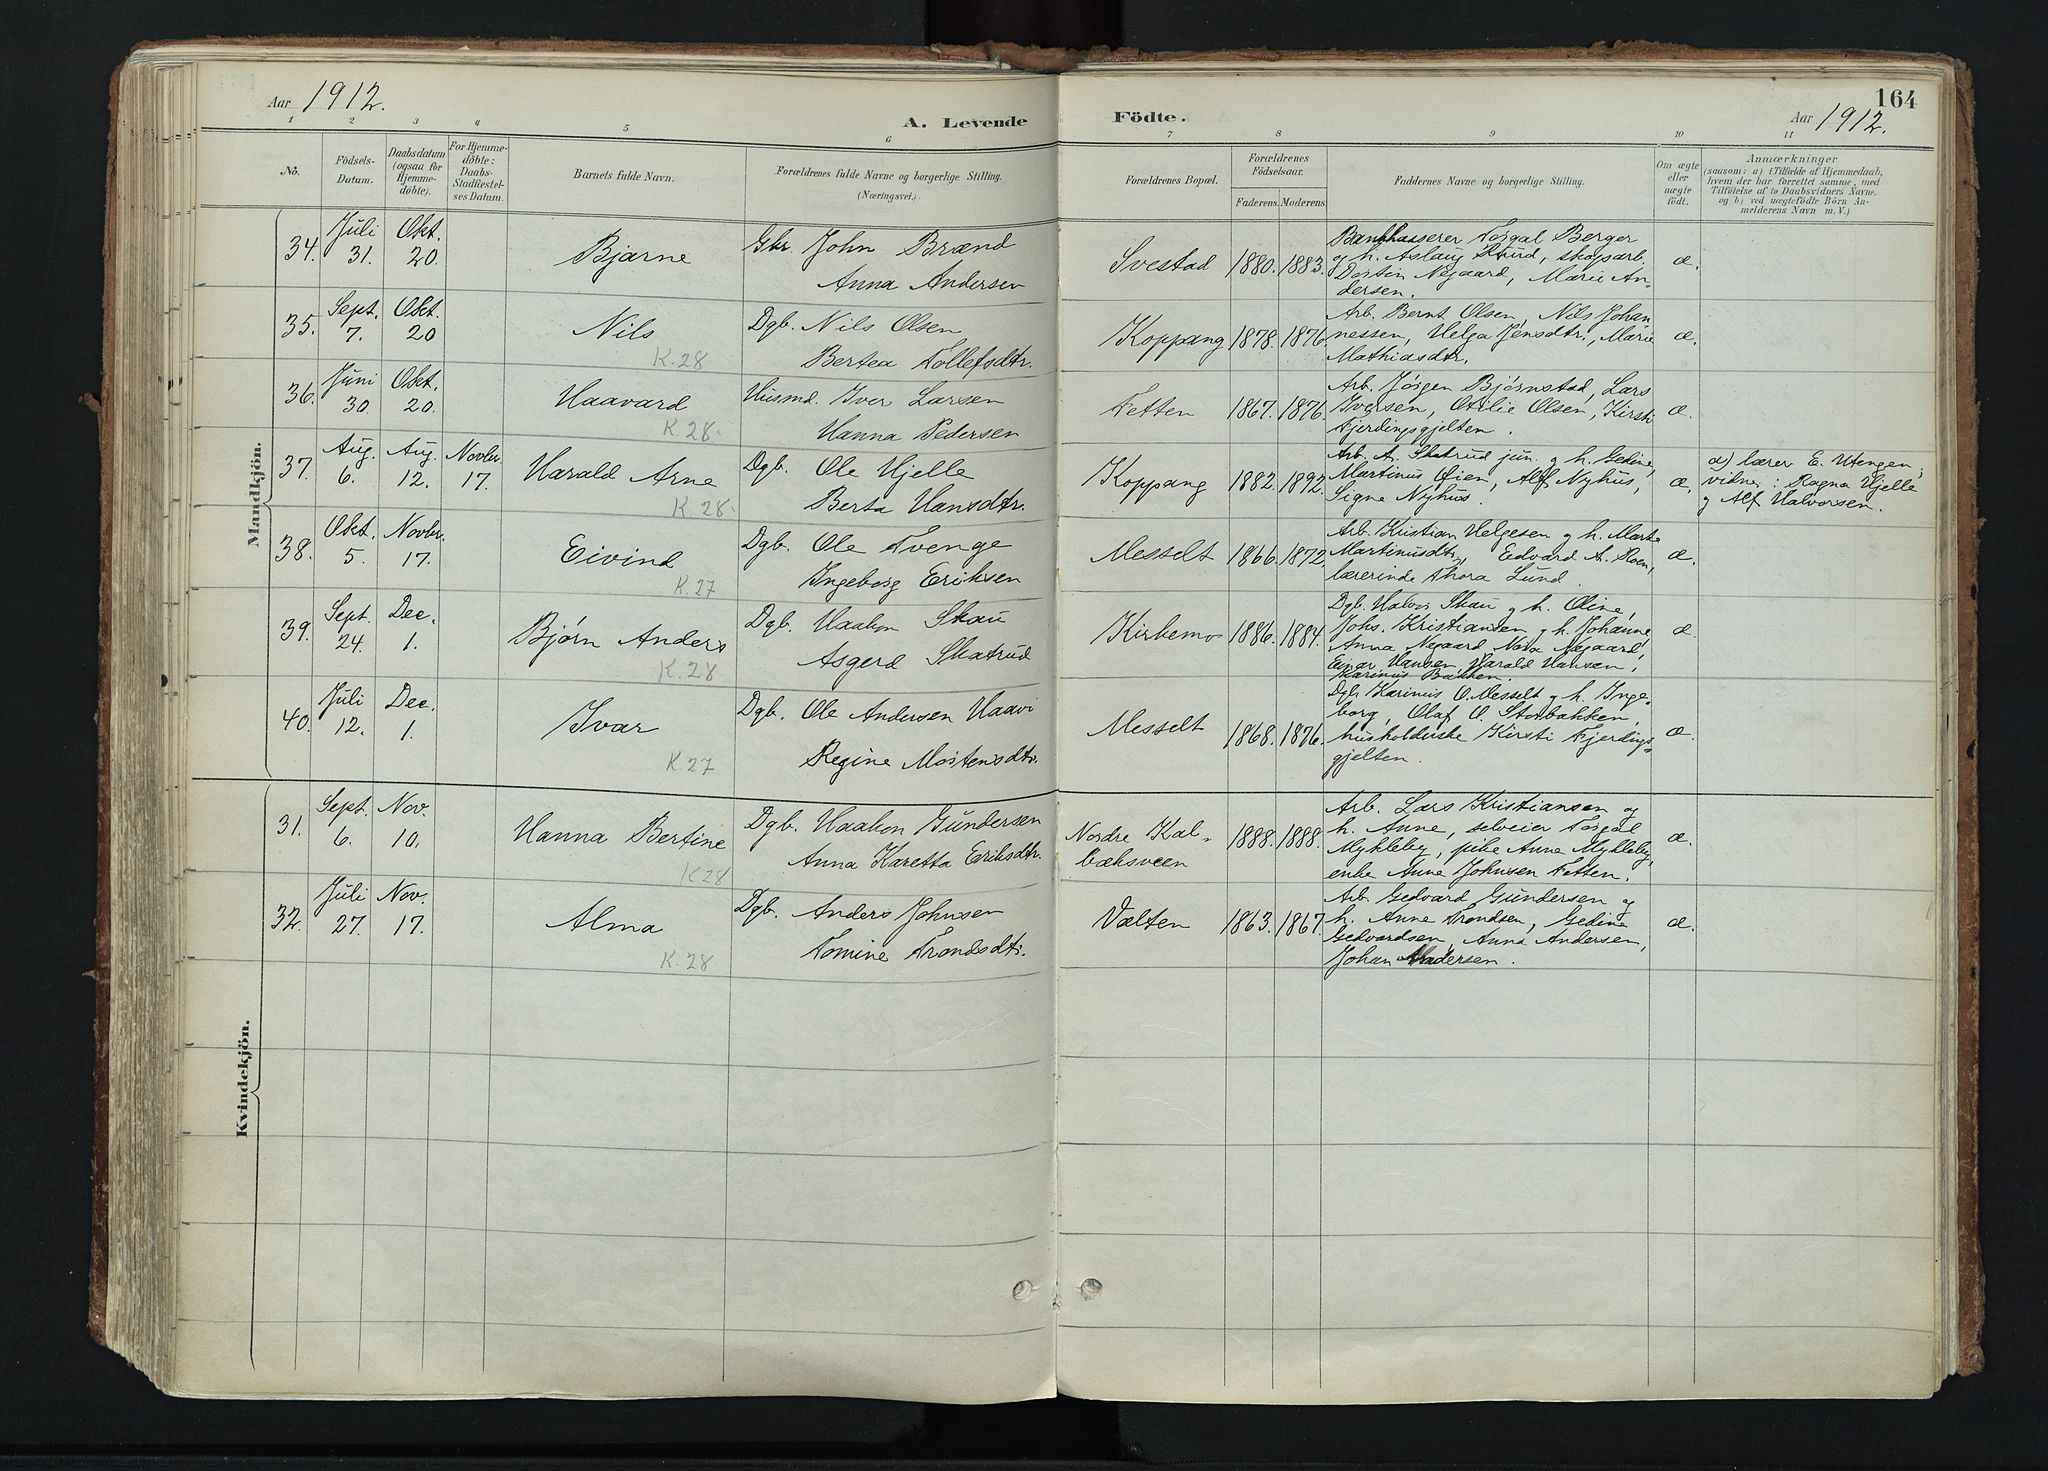 164
Aar 1912.
A. Levende Födte.
Aar 1912.
1 2 3 4 5 6 7 8 9 10 11
No.
Födsels-
Datum.
Daabsdatum
(ogsaa for
Hjemme-
döbte).
For Hjemme-
döbte:
Daabs-
Stadfæstel-
ses Datum.
Barnets fulde Navn.
Forældrenes fulde Navne og borgerlige Stilling.
(Næringsvei.)
Forældrenes Bopæl.
Forældrenes
Födselsaar.
Faderens. Moderens.
Faddernes Navne og borgerlige Stilling.
Om ægte
eller
uægte
födt.
Anmærkninger
(saasom: a) i Tilfælde af Hjemmedaab,
hvem der har forrettet samme, med
Tilföielse af to Daabsvidners Navne.
og b) ved uægtefödte Börn An-
melderens Navn m. V.)
Mandkjön.
34. Juli 31. Okt. 20. Bjarne
Gbr. John Brænd
Anna Andersen
Svestad 1880. 1883.
Bankkasserer Torgal Berger
og h. Aslaug Strud, skogarb.
Dortin Negaard, Marie An-
dersen.
æ.
35. Sept. 7. Okt. 20 Nils
K. 28
Dgb. Nils Olsen
Bertea Tollefsdtr.
Koppang 1878. 1876
Arb. Bernt Olsen, Nils Johan-
nessen, Helga Jensdtr., Marie
Mathiasdtr.
æ.
36. Juni 30. Okt. 20. Haavard
K. 28.
Husmd. Iver Larsen
Hanna Pedersen
Fetten 1867. 1876.
Arb. Jørgen Bjørnstad, Lars
Iversen, Otilie Olsen, Kirsti
Fjerdingsgjelten.
æ.
37. Aug. 6. Aug. 12. Novbr. 17. Harald Arne
K 28.
Dgb. Ole Hjelle
Berta Hansdtr.
Koppang 1882. 1892.
Arb. A. Skatrud jun. og h. Gedine,
Martinus Øien, Alf Nyhus,
Signe Nyhus.
æ.
a) lærer E. Utengen;
vidner: Ragna Hjelle
og Alf Halvorsen.
38. Okt. 5. Novbr. 17. Eivind
K. 27
Dgb. Ole Tvenge
Ingeborg Eriksen
Messelt 1866. 1872.
Arb. Kristian Helgesen og h. Marte
Martinusdtr, Edvard A. Roen,
lærerinde Thora Lund.
æ.
39. Sept. 24. Dec. 1. Bjørn Anders
K. 28
Dgb. Haakon Skau
Asgerd Skatrud
Kirkemo 1886. 1884.
Dgb. Halvor Skau og h. Oline,
Johs. Kristiansen og h. Johanne,
Anna Negaard, Nota Negaard,
Einar Hansen, Harald Hansen,
Karinus Bakken.
æ.
40. Juli 12. Dec. 1. Ivar
K. 27
Dgb. Ole Andersen Haavi
Regine Mortensdtr.
Messelt 1868. 1876.
Dgb. Karinus O. Messelt og h. Inge-
borg, Olaf O. Storbakken,
husholderske Kirsti Fjerdings-
gjelten.
æ.
Kvindekjön.
31. Sept. 6. Nov. 10. Hanna Bertine
K 28
Dgb. Haakon Gundersen
Anna Karetta Eriksdtr.
Nordre Kal-
bæksveen 1888. 1888.
Arb. Lars Kristiansen og
h. Anne, selveier Torgal
Mykleby, pike Anne Mykleby,
enke Anne Johnsen Fetten.
æ.
32. Juli 27. Nov. 17. Alma
K. 28
Dgb. Anders Johnsen
Tomine Trondsdtr.
Vælten 1863. 1867.
Arb. Gedvard Gundersen og
h. Anne Trondsen, Gedine
Gedvardsen, Anna Andersen,
Johan Andersen.
æ.